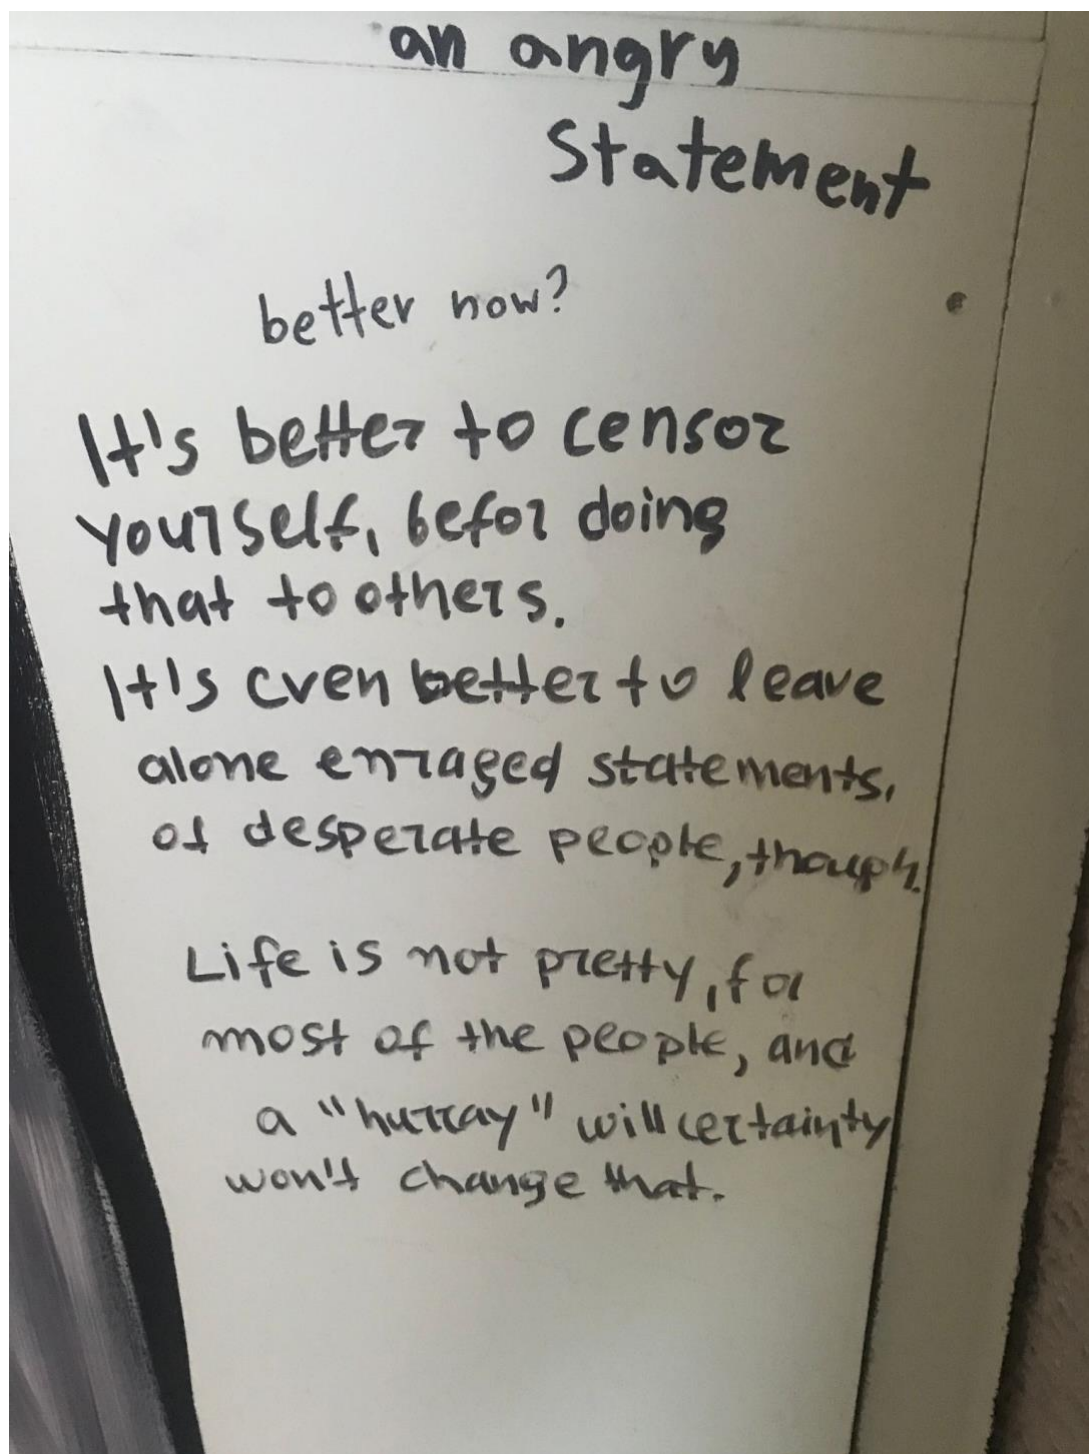 an angry
Statement
better now?
It's better to censor
yourself, befor doing
that to others.
It's even better to leave
alone enraged statements,
of desperate people, though.
Life is not pretty, for
most of the people, and
a "hurray" will certainty
won't change that.